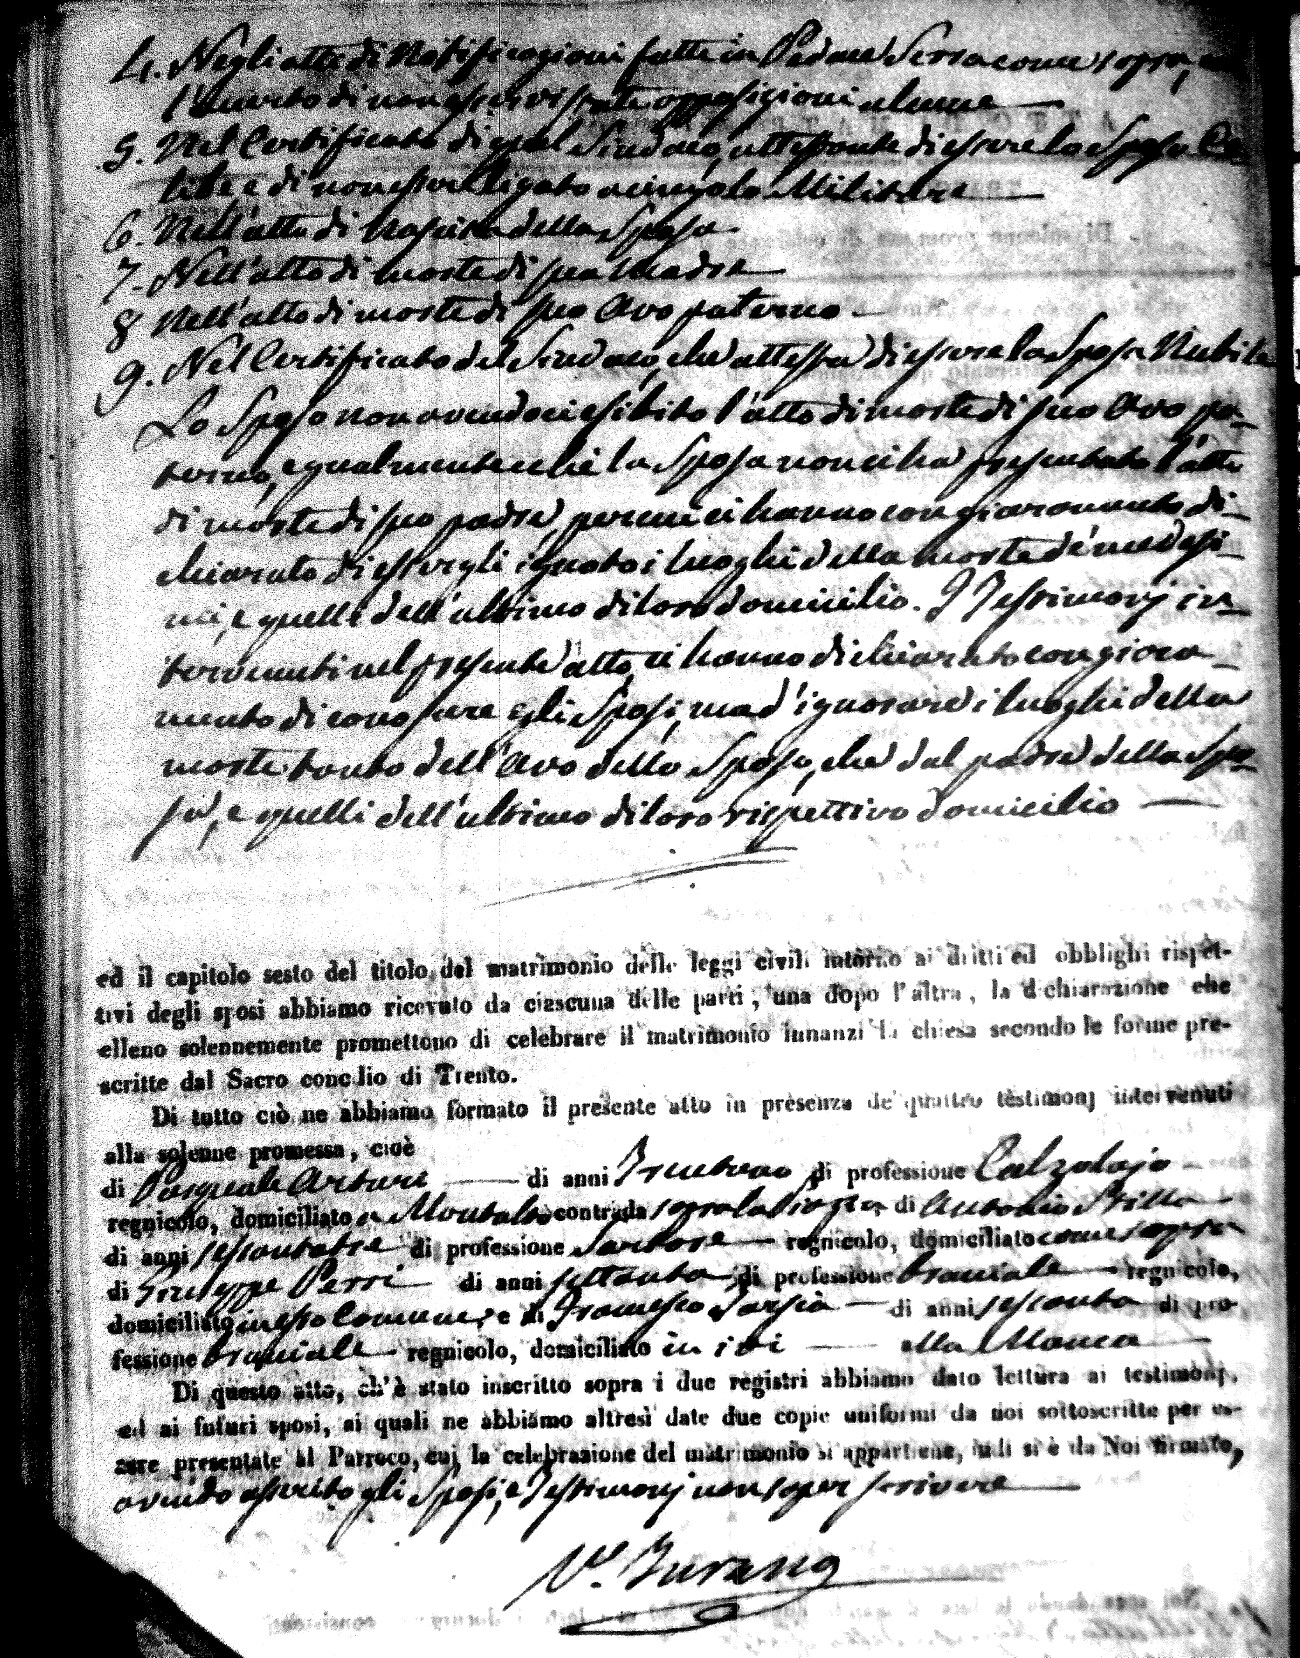 4. Negli atti di Notificazioni fatte in Pedace Serra come sopra, con
l'incerto di non esservi state opposizioni alcune
5. Nel Certificato di quel Sindaco, attestante di essere lo Sposo Ce-
libe e di non esser ligato a cingolo Militare
6. Nell'atto di nascita della Sposa
7. Nell'atto di morte di sua madre
8 Nell'atto di morte di suo Avo paterno
9. Nel Certificato del Sindaco, che attesta di essere la Sposa Nubile
Lo Sposo non avendoci esibito l'atto di morte di suo Avo pa-
terno, egualmente che la Sposa non ci ha presentato l'atto
di morte di suo padre, perciò ci hanno con giuramento di-
chiarato di essergli ignoto i luoghi della morte de' medesi-
mi, e quelli dell'ultimo di loro domicilio. I Testimonj in-
tervenuti nel presente atto, ci hanno dichiarato con giura-
mento di conoscere gli Sposi, ma d'ignorare i luoghi della
morte tanto dell'Avo dello Sposo, che dal padre della Spo-
sa, e quelli dell'ultimo di loro rispettivo domicilio
ed il capitolo sesto del titolo del matrimonio delle leggi civili intorno ai dritti ed obblighi rispet-
tivi degli sposi abbiamo ricevuto da ciascuna delle parti, una dopo l'altra, la dichiarazione che
elleno solennemente promettono di celebrare il matrimonio innanzi la chiesa secondo le forme pre-
scritte dal Sacro concilio di Trento.
Di tutto ciò ne abbiamo formato il presente atto in presenza de' quattro testimonj intervenuti
alla solenne promessa, cioè
di Pasquale Arturi di anni Trentuno di professione Calzolajo
regnicolo, domiciliato a Montalto contrada sopra la piazza di Antonio Stillo
di anni sessantatre di professione Sartore regnicolo, domiciliato come sopra
di Giuseppe Perri di anni settanta di professione braciale regnicolo,
domiciliato in esso Comune, e di Francesco Sarsia di anni sessanta di pro-
fessione braciale regnicolo, domiciliato in ivi alla Manca
Di questo atto, ch'è stato inscritto sopra i due registri abbiamo dato lettura ai testimonj,
ed ai futuri sposi, ai quali ne abbiamo altresì date due copie uniformi da noi sottoscritte per es-
sere presentate al Parroco, cui la celebrazione del matrimonio si appartiene, indi si è da Noi firmato,
avendo asserito gli Sposi, e Testimonj non saper scrivere